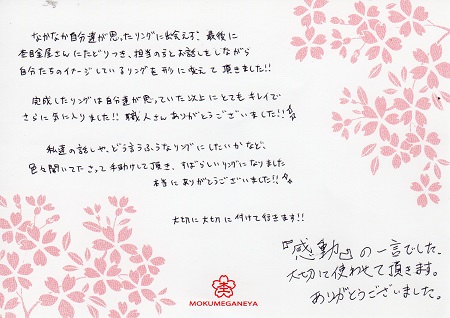 なかなか自分達が思ったリングに出会えず、最後に
杢目金屋さんにたどりつき、担当の方とお話しをしながら
自分たちのイメージしているリングを形に変えて頂きました!!
完成したリングは自分達が思っていた以上にとてもキレイで
さらに気に入りました!!職人さんありがとうございました!!
私達の話しや、どう言うふうなリングにしたいかなど、
色々聞いて下さって手助けして頂き、すばらしいリングになりました
本当にありがとうございました!!
大切に大切に付けて行きます!!
『感動』の一言でした。
大切に使わせて頂きます。
ありがとうございました。
MOKUMEGANEYA